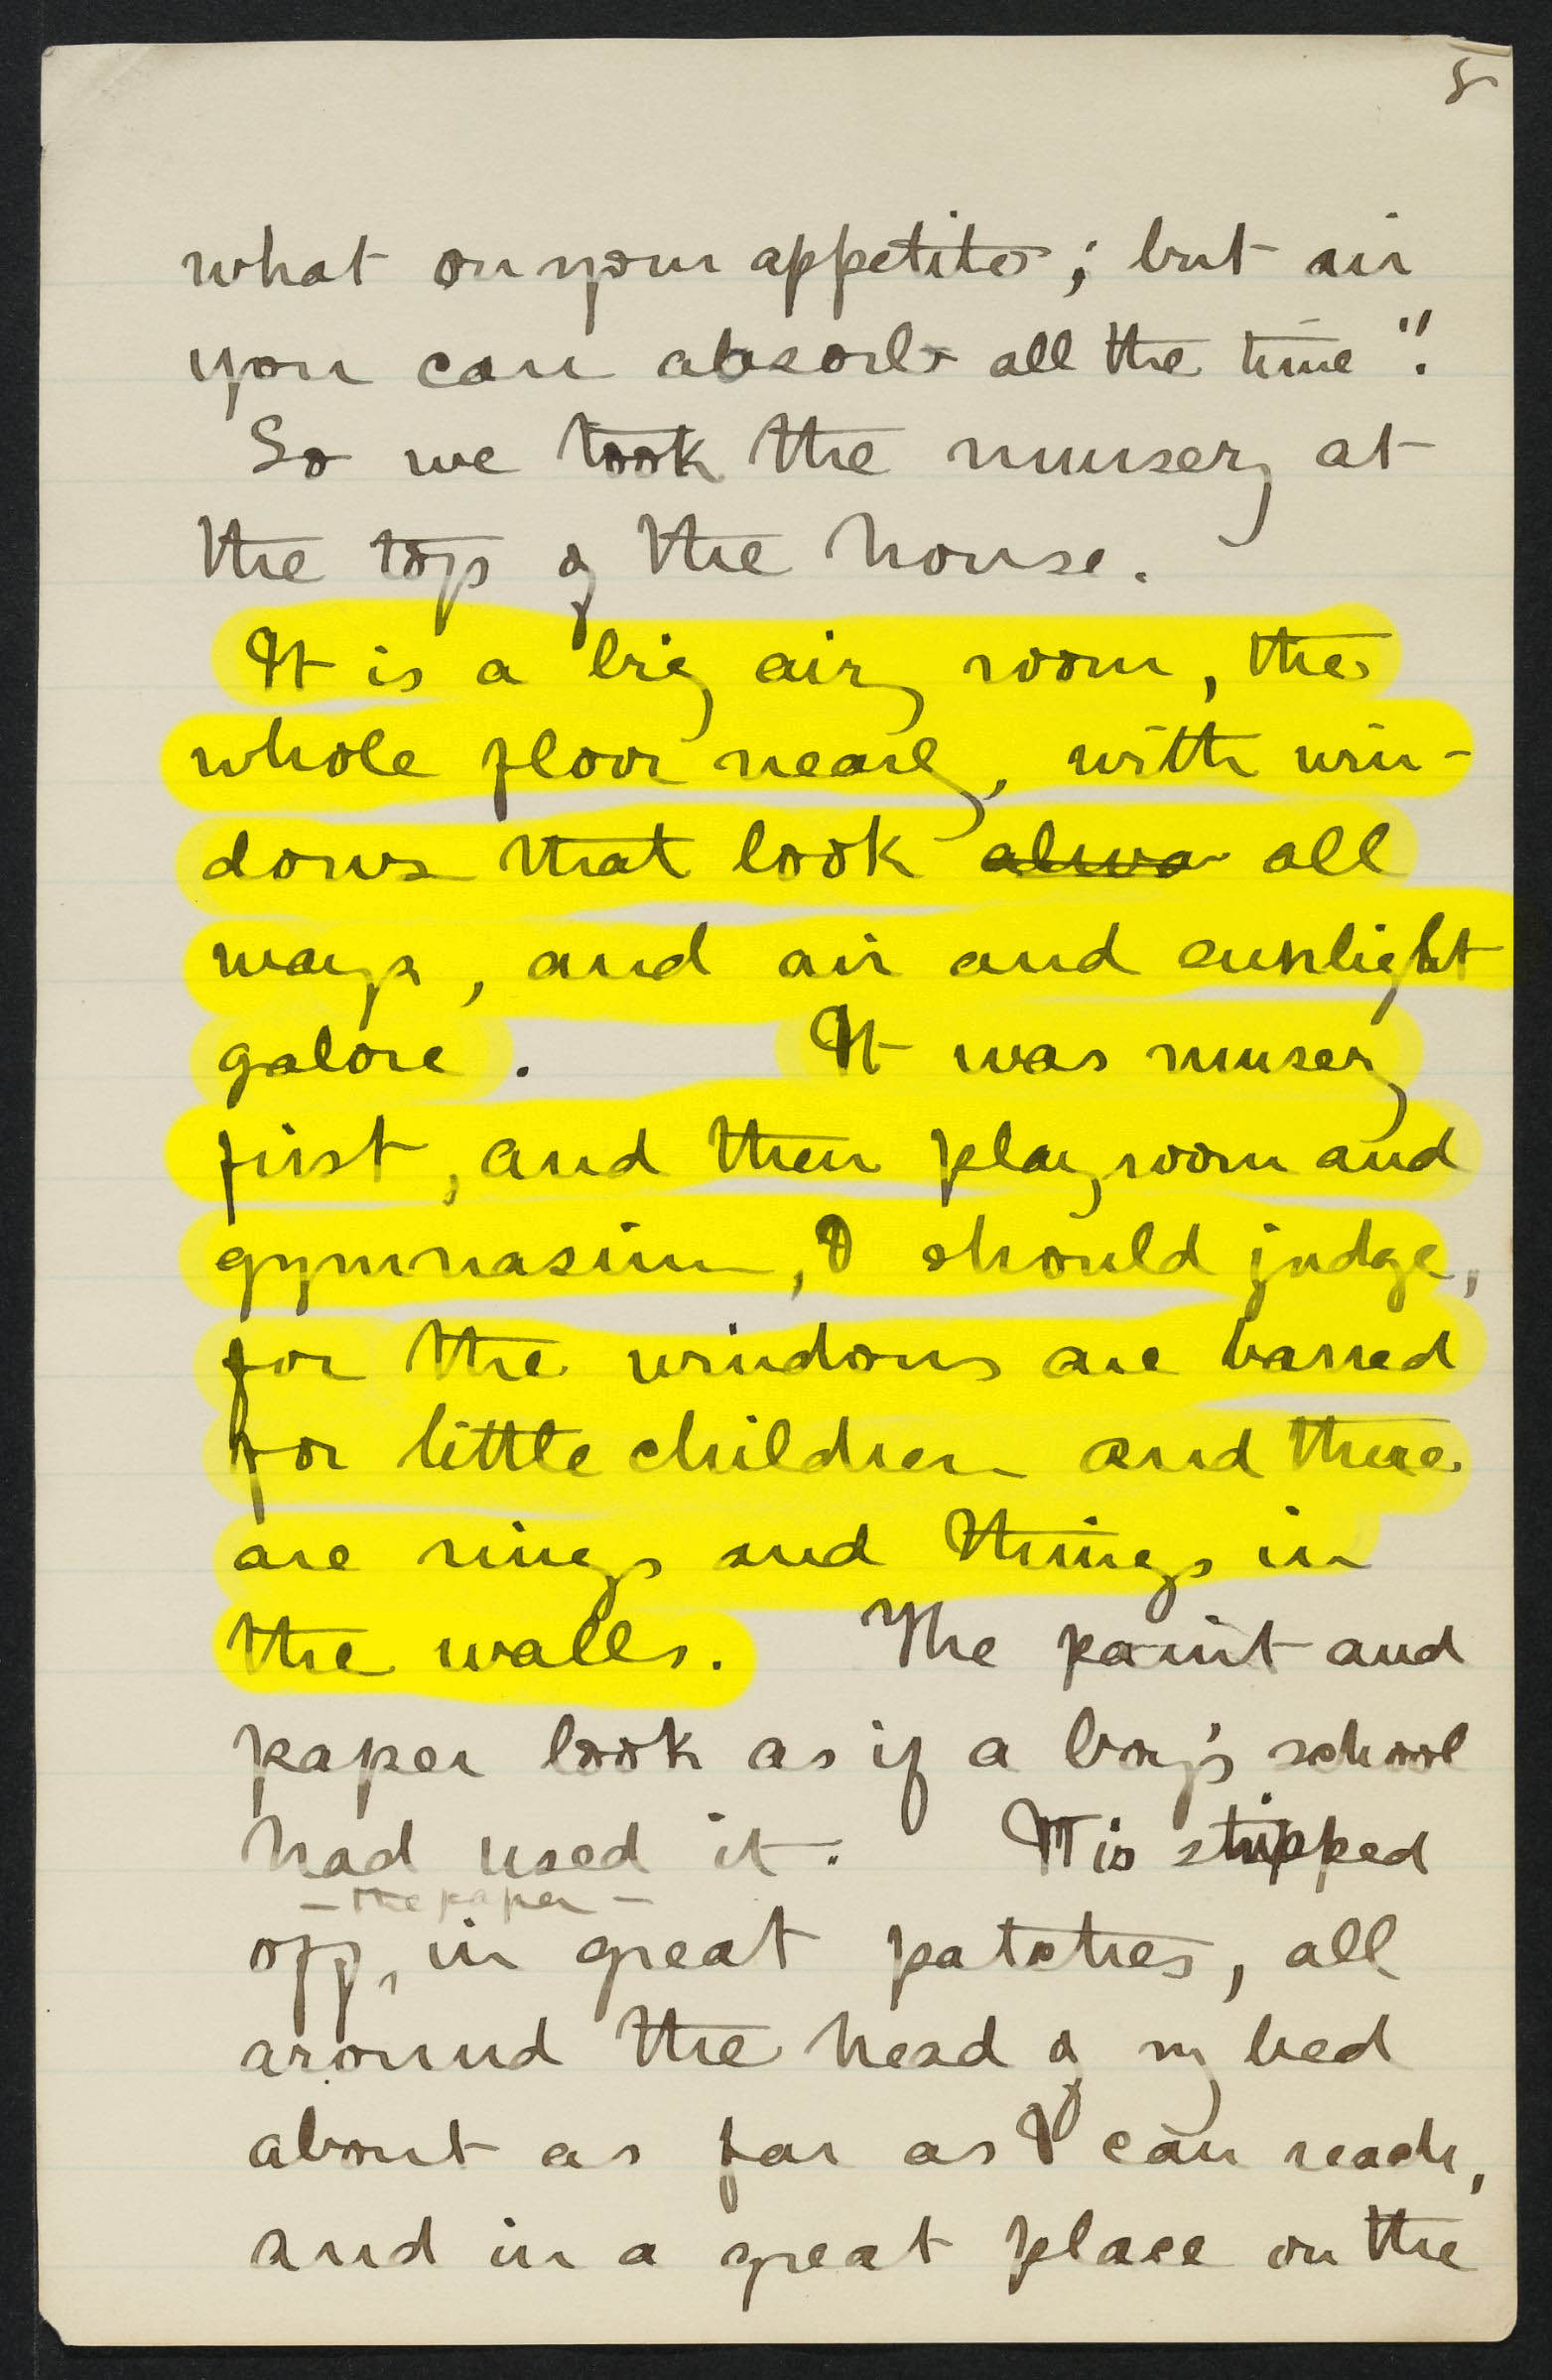 8
what on your appetite; but air
you can absorb all the time".
So we took the nursery at
the top of the house.
It is a big airy room, the
whole floor nearly, with win-
dows that look alwa all
ways, and air and sunlight
galore. It was nursery
first, and then playroom and
gymnasium, I should judge,
for the windows are barred
for little children and there
are rings and things in
the walls. The paint and
paper look as if a boy's school
had used it. It is stripped
- the paper -
off, in great patches, all
around the head of my bed
about as far as I can reach,
and in a great place on the